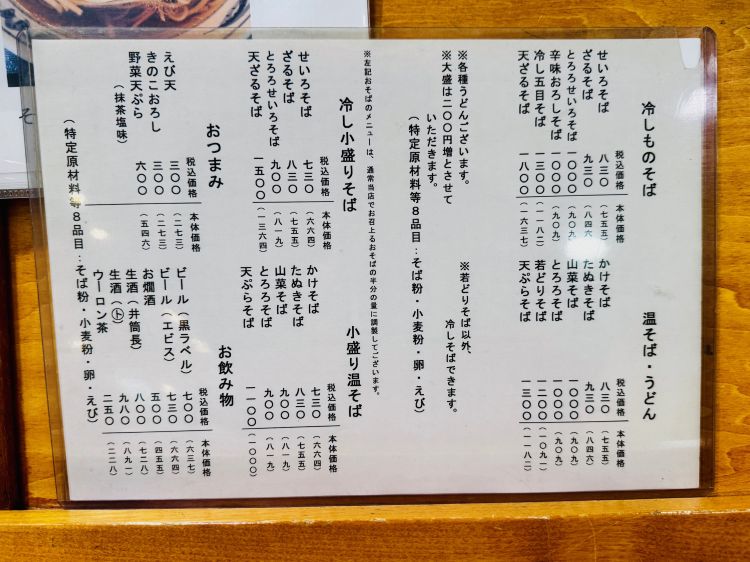 冷しものそば
税込価格 本体価格
せいろそば 八三〇 （七五五）
ざるそば 九三〇 （八四六）
とろろせいろそば 一〇〇〇 （九〇九）
辛味おろしそば 一〇〇〇 （九〇九）
冷し五目そば 一三〇〇 （一一八二）
天ざるそば 一八〇〇 （一六三七）
温そば・うどん
税込価格 本体価格
かけそば 八三〇 （七五五）
たぬきそば 九三〇 （八四六）
山菜そば 一〇〇〇 （九〇九）
とろろそば 一〇〇〇 （九〇九）
若どりそば 一二〇〇 （一〇九一）
天ぷらそば 一三〇〇 （一一八二）
※各種うどんございます。
※大盛は二〇〇円増とさせて
いただきます。
（特定原材料等８品目：そば粉・小麦粉・卵・えび）
※若どりそば以外、
冷しそばできます。
※左記おそばのメニューは、通常当店でお召上るおそばの半分の量に調製してございます。
冷し小盛りそば
税込価格 本体価格
せいろそば 七三〇 （六六四）
ざるそば 八三〇 （七五五）
とろろせいろそば 九〇〇 （八一九）
天ざるそば 一五〇〇 （一三六四）
小盛り温そば
税込価格 本体価格
かけそば 七三〇 （六六四）
たぬきそば 八三〇 （七五五）
山菜そば 九〇〇 （八一九）
とろろそば 九〇〇 （八一九）
天ぷらそば 一一〇〇 （一〇〇〇）
おつまみ
税込価格 本体価格
えび天 三〇〇 （二七三）
きのこおろし 三〇〇 （二七三）
野菜天ぷら 六〇〇 （五四六）
（抹茶塩味）
お飲み物
税込価格 本体価格
ビール（黒ラベル） 七〇〇 （六三七）
ビール（エビス） 七三〇 （六六四）
お燗酒 五〇〇 （四五五）
生酒（井筒長） 八〇〇 （七二八）
生酒（㊦） 九八〇 （八九一）
ウーロン茶 二五〇 （二二八）
（特定原材料等８品目：そば粉・小麦粉・卵・えび）
そ